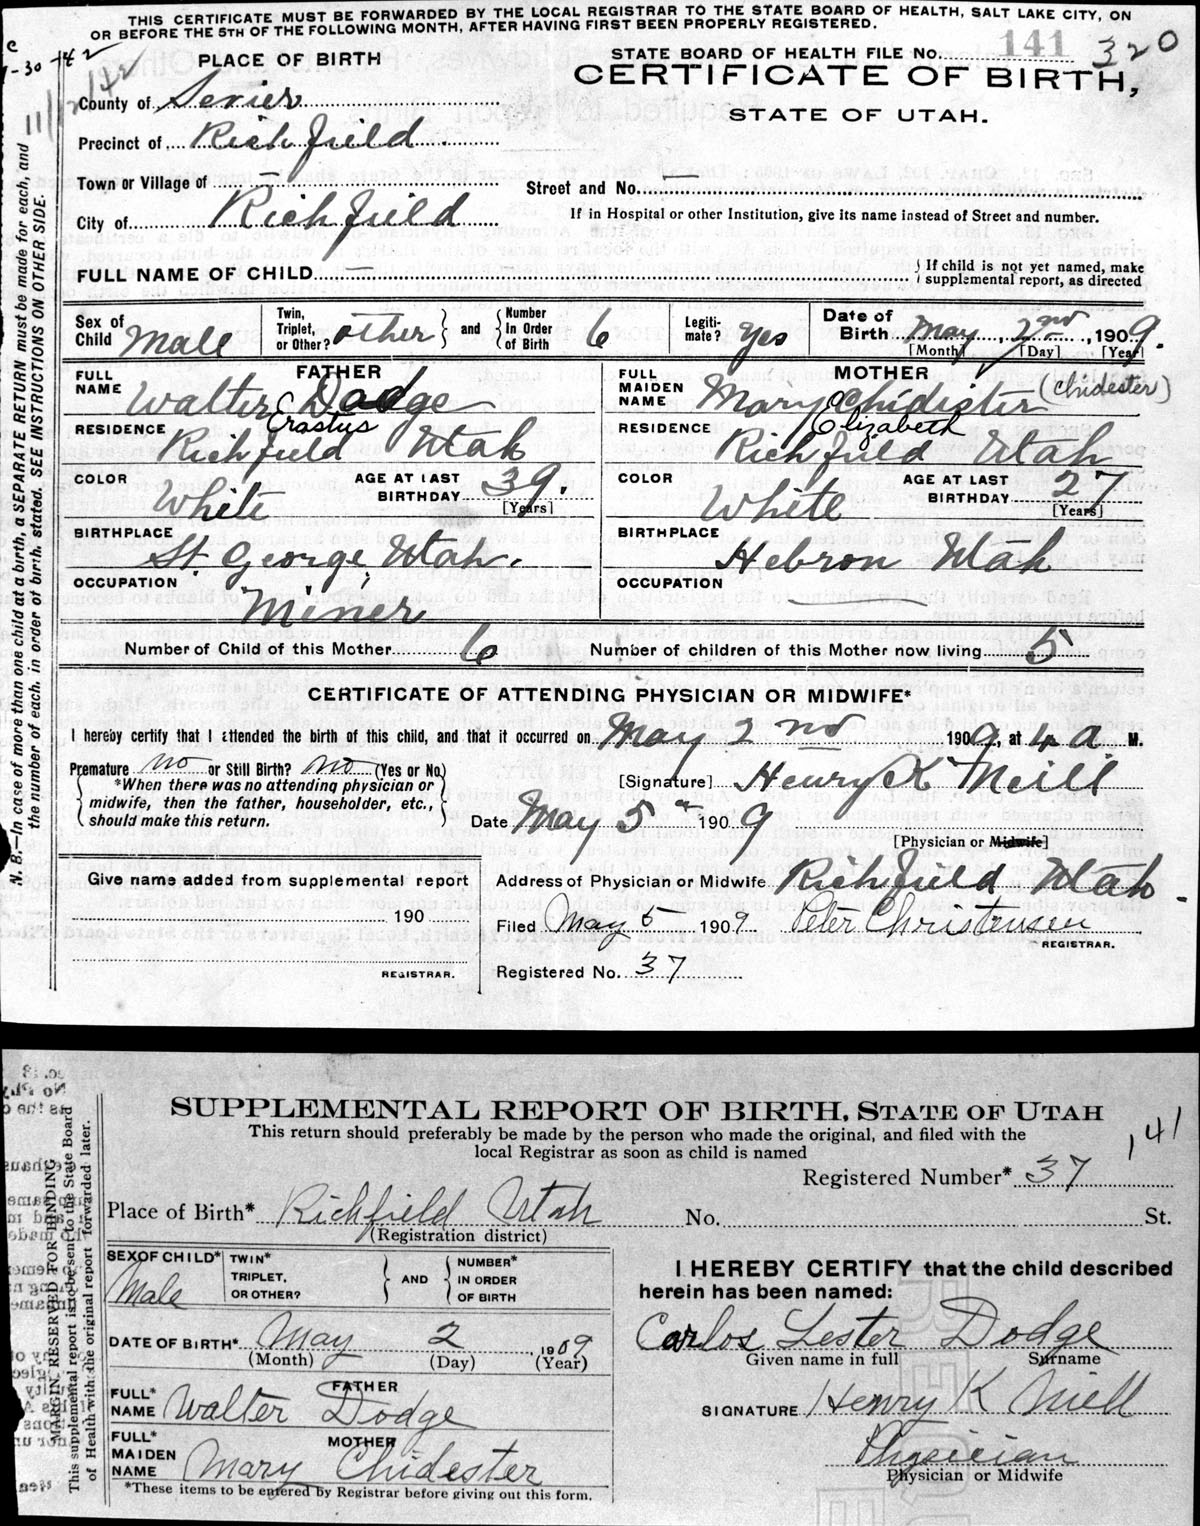 THIS CERTIFICATE MUST BE FORWARDED BY THE LOCAL REGISTRAR TO THE STATE BOARD OF HEALTH, SALT LAKE CITY, ON
OR BEFORE THE 5TH OF THE FOLLOWING MONTH, AFTER HAVING FIRST BEEN PROPERLY REGISTERED.
PLACE OF BIRTH
STATE BOARD OF HEALTH FILE No. 141 320
CERTIFICATE OF BIRTH,
STATE OF UTAH.
County of Sevier
Precinct of Richfield
Town or Village of — Street and No. —
City of Richfield If in Hospital or other Institution, give its name instead of Street and number.
FULL NAME OF CHILD — } If child is not yet named, make
supplemental report, as directed
Sex of Child Male Twin, Triplet, or Other? other } and { Number In Order of Birth 6 Legiti-mate? Yes Date of Birth May, 2nd, 1909.
[Month] [Day] [Year]
FATHER MOTHER
FULL NAME Walter E Dodge FULL MAIDEN NAME Mary E Chidister (Chidester)
Erastus Elizabeth
RESIDENCE Richfield Utah RESIDENCE Richfield Utah
COLOR White AGE AT LAST BIRTHDAY 39. [Years] COLOR White AGE AT LAST BIRTHDAY 27 [Years]
BIRTHPLACE St. George, Utah. BIRTHPLACE Hebron Utah
OCCUPATION Miner OCCUPATION —
Number of Child of this Mother 6 Number of children of this Mother now living 5
CERTIFICATE OF ATTENDING PHYSICIAN OR MIDWIFE*
I hereby certify that I attended the birth of this child, and that it occurred on May 2nd 1909, at 4 a M.
Premature no or Still Birth? no (Yes or No)
{ *When there was no attending physician or
midwife, then the father, householder, etc.,
should make this return. }
[Signature] Henry K Neill
Date May 5 1909
[Physician or Midwife]
Give name added from supplemental report
190
REGISTRAR.
Address of Physician or Midwife Richfield Utah.
Filed May 5 1909 Peter Christensen
REGISTRAR.
Registered No. 37
N. B.—In case of more than one child at a birth, a SEPARATE RETURN must be made for each, and
the number of each, in order of birth, stated. SEE INSTRUCTIONS ON OTHER SIDE.
SUPPLEMENTAL REPORT OF BIRTH, STATE OF UTAH
This return should preferably be made by the person who made the original, and filed with the
local Registrar as soon as child is named
141
Registered Number* 37
Place of Birth* Richfield Utah No. St.
(Registration district)
SEX OF CHILD* Male TWIN* TRIPLET, OR OTHER? } AND { NUMBER* IN ORDER OF BIRTH
DATE OF BIRTH* May 2, 1909
(Month) (Day) (Year)
FATHER
FULL* NAME Walter Dodge
MOTHER
FULL* MAIDEN NAME Mary Chidester
*These items to be entered by Registrar before giving out this form.
I HEREBY CERTIFY that the child described
herein has been named:
Carlos Lester Dodge
Given name in full Surname
SIGNATURE Henry K Niell
Physician
Physician or Midwife
MARGIN RESERVED FOR BINDING
This supplemental report is to be sent to the State Board
of Health with the original report forwarded later.